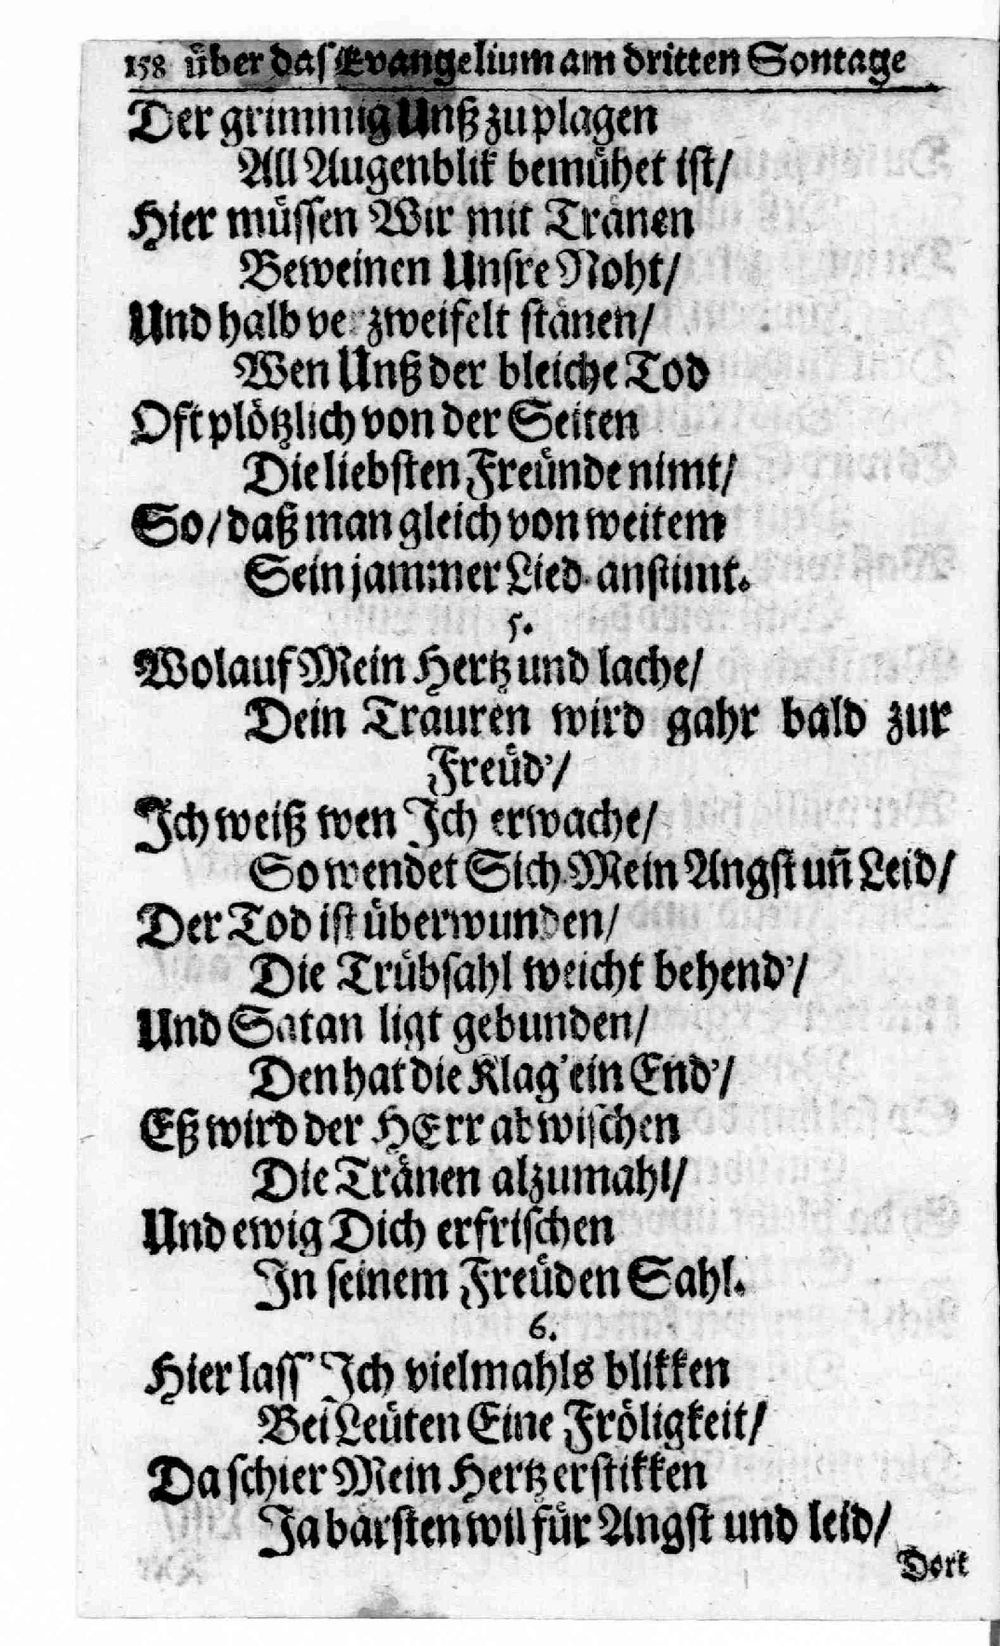 158 über das Evangelium am dritten Sontage
Der grimmig Unß zu plagen
All Augenblik bemühet ist/
Hier müssen Wir mit Tränen
Beweinen Unsre Noht/
Und halb verzweifelt stänen/
Wen Unß der bleiche Tod
Oft plötzlich von der Seiten
Die liebsten Freünde nimt/
So/ daß man gleich von weitem
Sein jammer Lied anstimt.
5.
Wolauf Mein Hertz und lache/
Dein Trauren wird gahr bald zur
Freüd'/
Ich weiß wen Ich erwache/
So wendet Sich Mein Angst uñ Leid/
Der Tod ist überwunden/
Die Trübsahl weicht behend'/
Und Satan ligt gebunden/
Den hat die Klag' ein End'/
Eß wird der HErr abwischen
Die Tränen alzumahl/
Und ewig Dich erfrischen
In seinem Freüden Sahl.
6.
Hier lass' Ich vielmahls blikken
Bei Leüten Eine Fröligkeit/
Da schier Mein Hertz erstikken
Ja bärsten wil für Angst und leid/
Dort